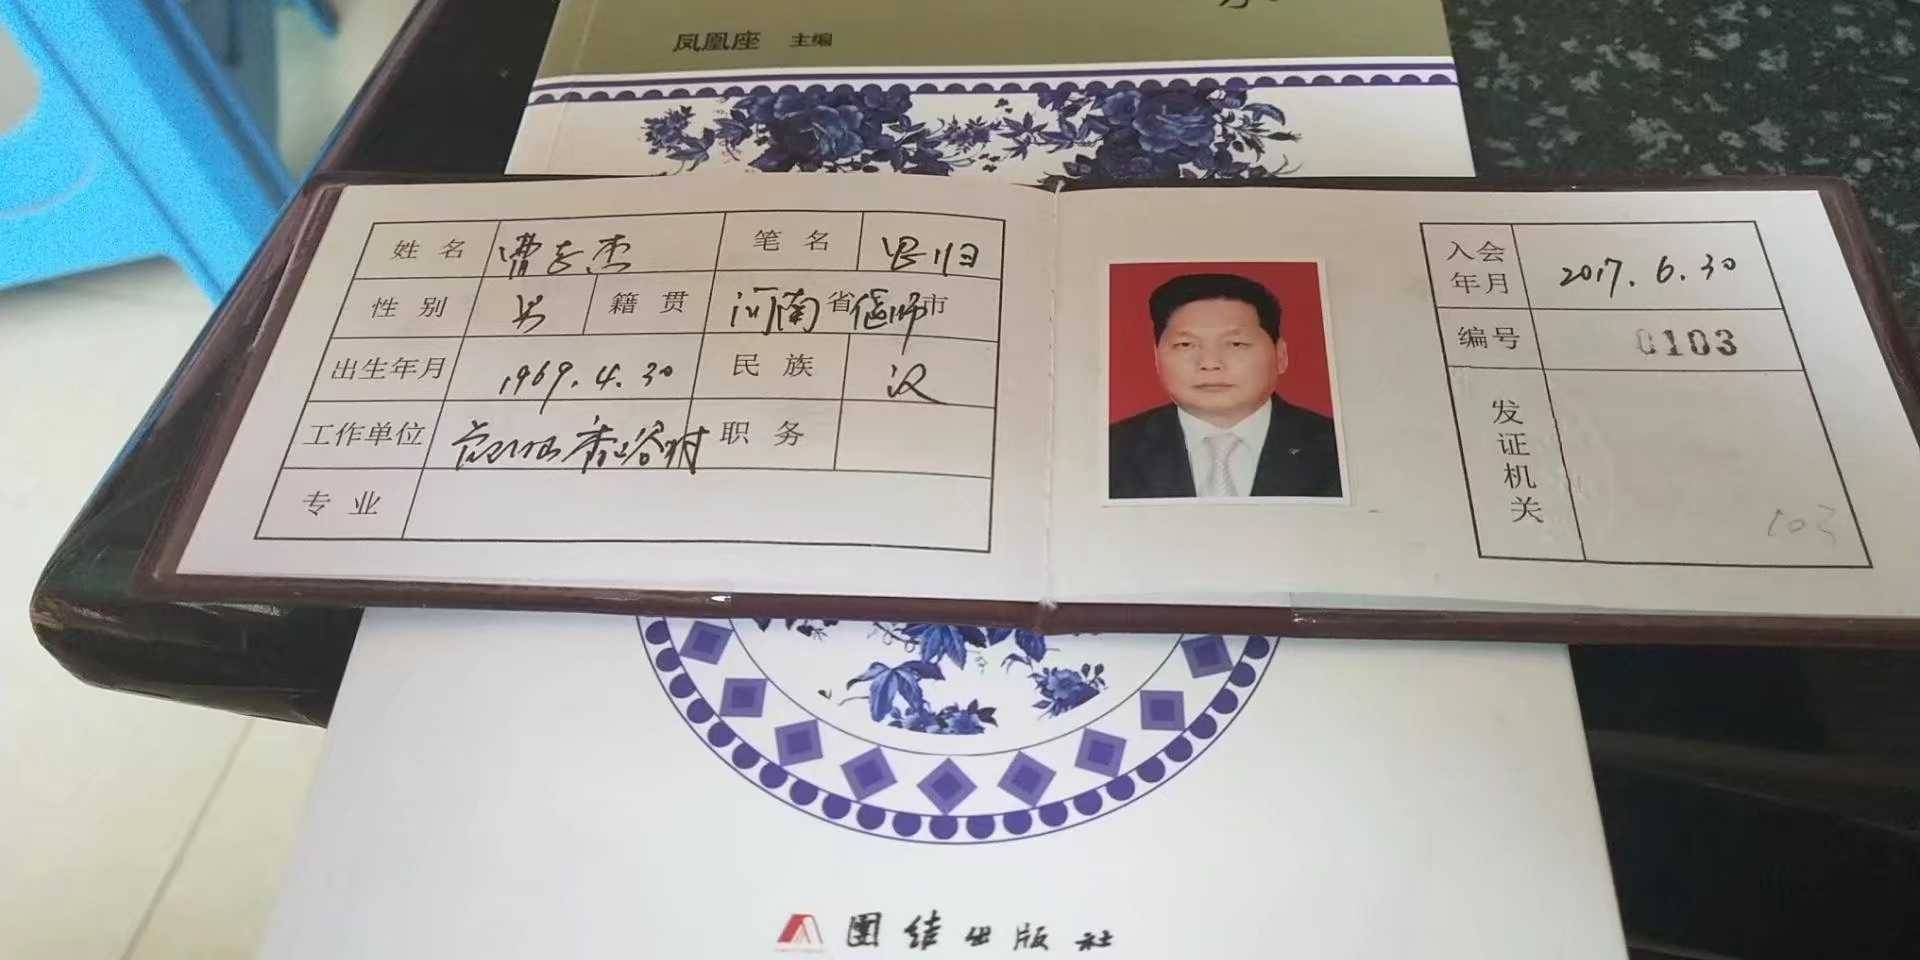 凤凰座 主编
姓名 曹志杰 笔名 思归
性别 男 籍贯 河南省偃师市
出生年月 1969.4.30 民族 汉
工作单位 职务
专业
入会年月 2017.6.30
编号 0103
发证机关
103
團结出版社